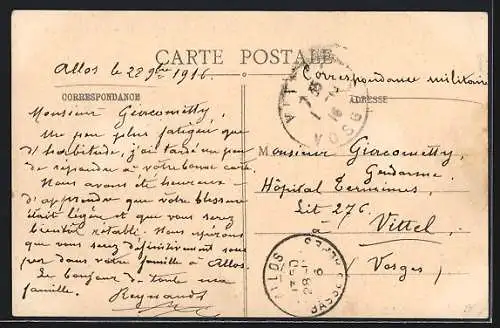 CARTE POSTALE
Allos le 22 9bre 1916.
Correspondance militaire
CORRESPONDANCE
ADRESSE
Monsieur Giacometty,
Un peu plus fatigué que
d'habitude, j'ai tardé un peu
de répondre à votre bonne carte.
Nous avons été heureux
d'apprendre que votre blessure
était légère et que vous serez
bientôt rétabli. Nous espérons
que vous serez définitivement sous
peu dans votre famille à Allos.
Le bonjour de toute ma
famille.
Reynaud
Monsieur Giacometty,
Gendarme,
Hôpital Terminus,
Lit 276.
à Vittel
(Vosges)
VITTEL
VOSGES
ALLOS
BASSES ALPES